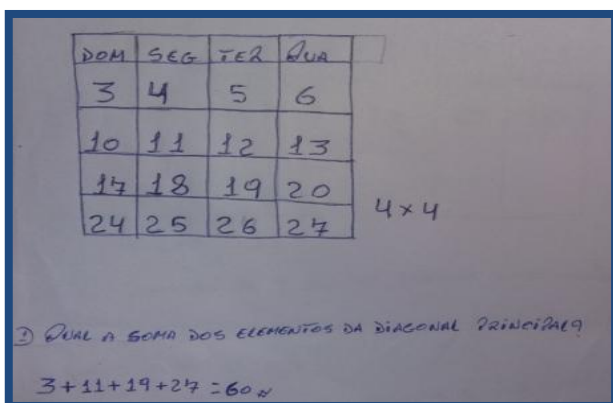 DOM SEG TER QUA
3 4 5 6
10 11 12 13
17 18 19 20
24 25 26 27
4 x 4
1) QUAL A SOMA DOS ELEMENTOS DA DIAGONAL PRINCIPAL?
3+11+19+27 = 60